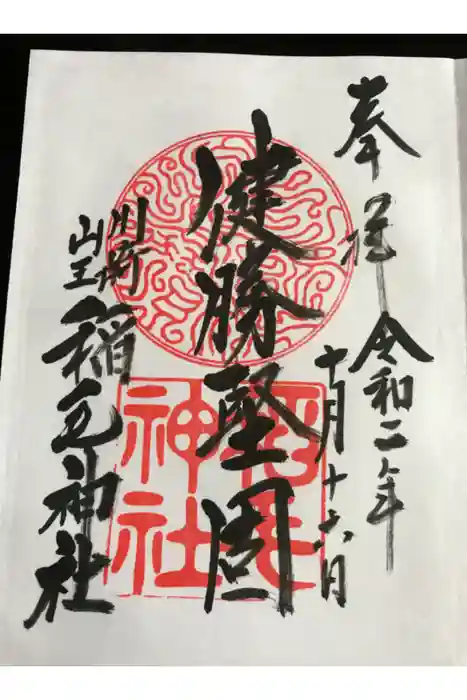 奉拝 令和二年
十月十六日
健勝堅固
川崎
山王
稲毛神社
稲毛
神社